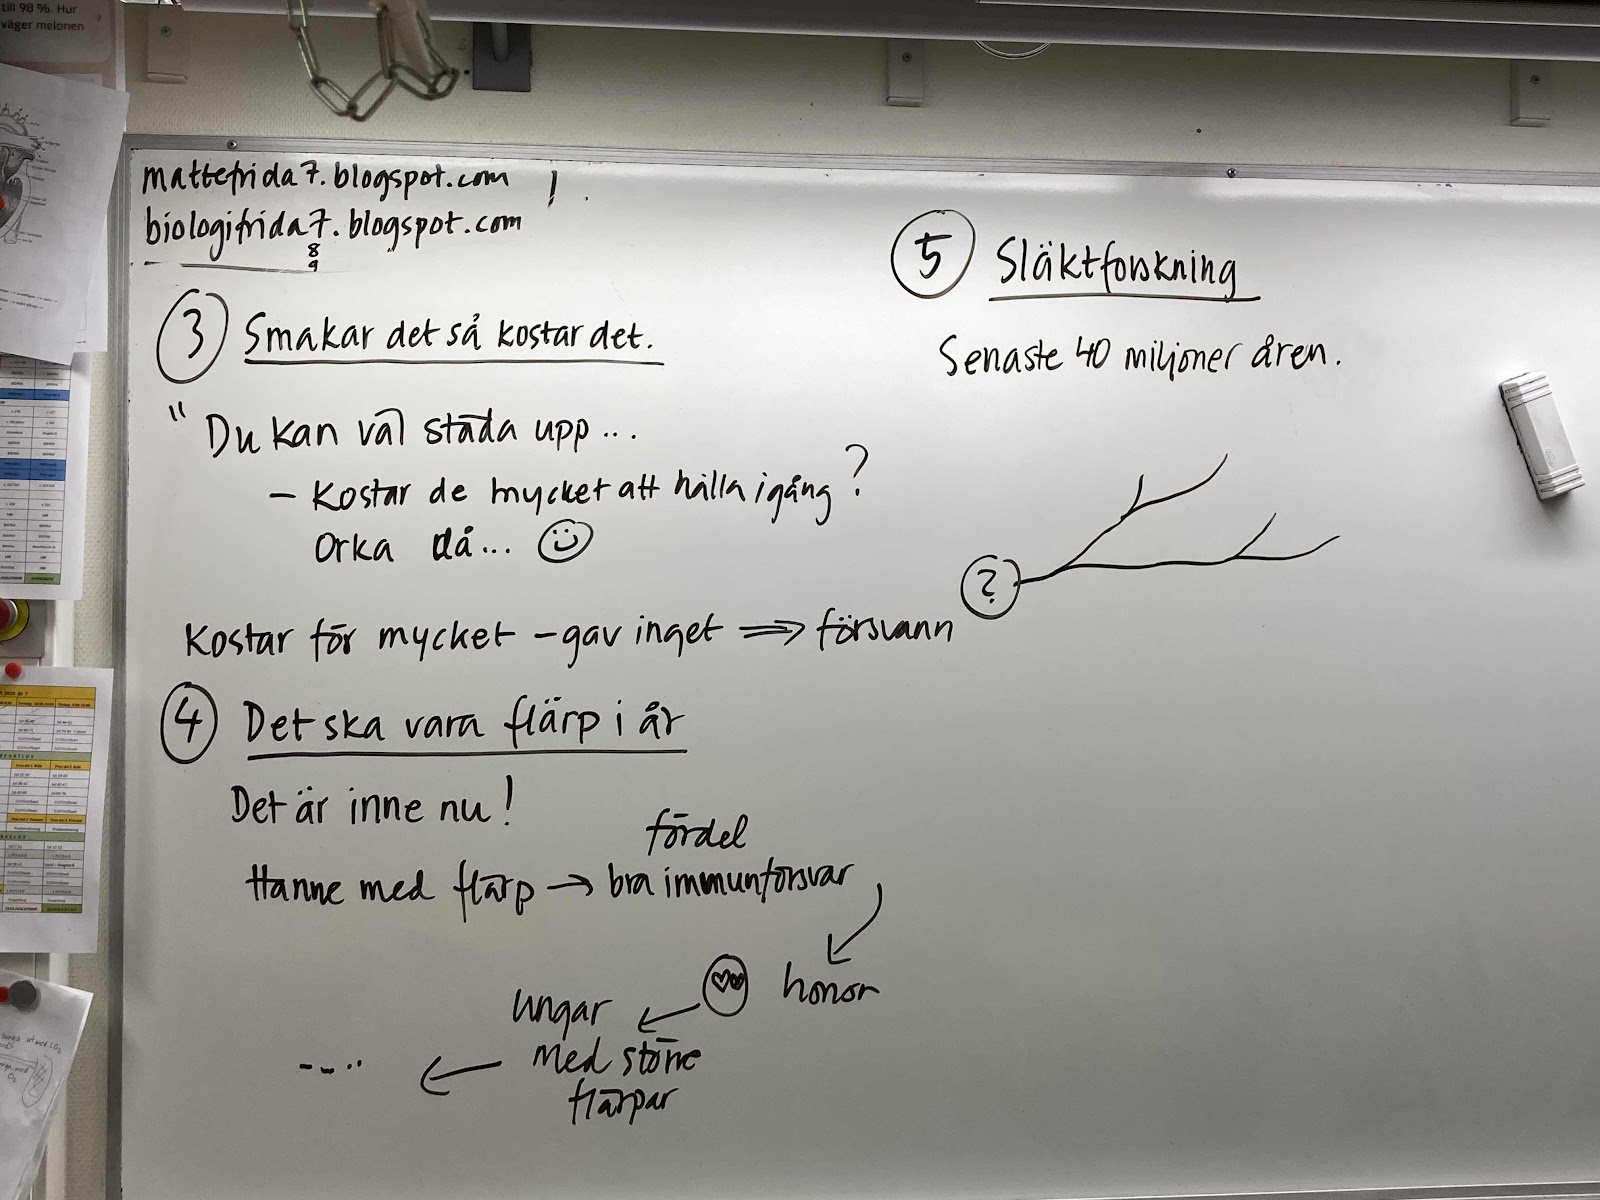 till 98 %. Hur
väger melonen
mattefrida7.blogspot.com !
biologifrida7.blogspot.com
8
9
③ Smakar det så kostar det.
" Du kan väl städa upp...
- Kostar de mycket att hålla igång ?
Orka då...
Kostar för mycket - gav inget ⇒ försvann
④ Det ska vara flärp i år
Det är inne nu !
fördel
Hanne med flärp → bra immunförsvar
honor
ungar
med större
flärpar
- - . .
⑤ Släktforskning
Senaste 40 miljoner åren.
?